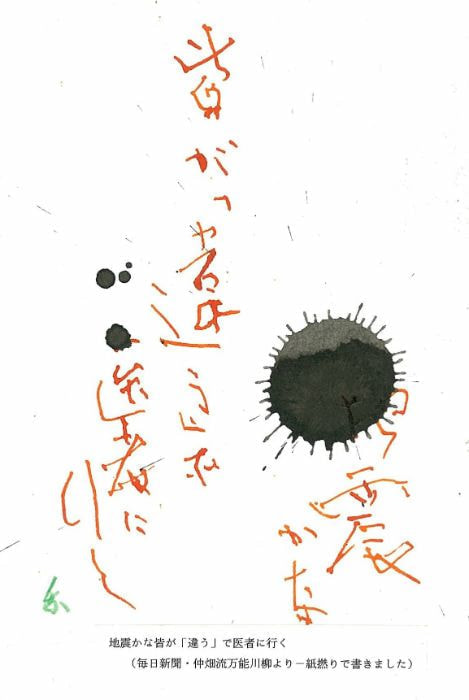 震
かな
皆が「違う」
に
行く
地震かな皆が「違う」で医者に行く
（毎日新聞・仲畑流万能川柳より－紙撚りで書きました）